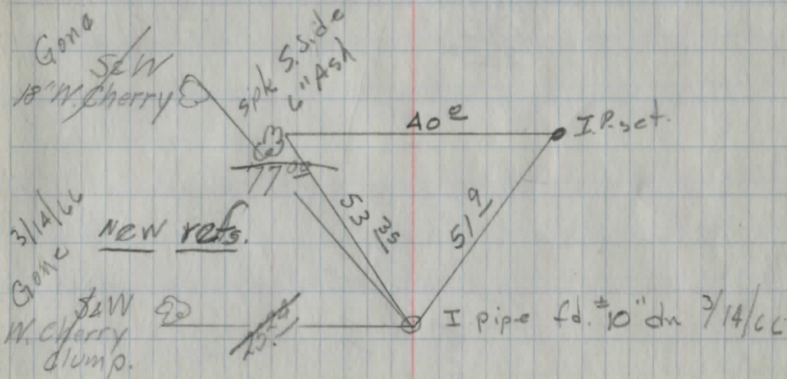 Gone
S&W
18" W. Cherry
spk S. Side
6" Ash
40 e
I.P. set.
77
53 35
51 9
3/14/66
Gone
New refs.
S&W
W. Cherry
clump.
I pipe fd. ±10" dn 3/14/66